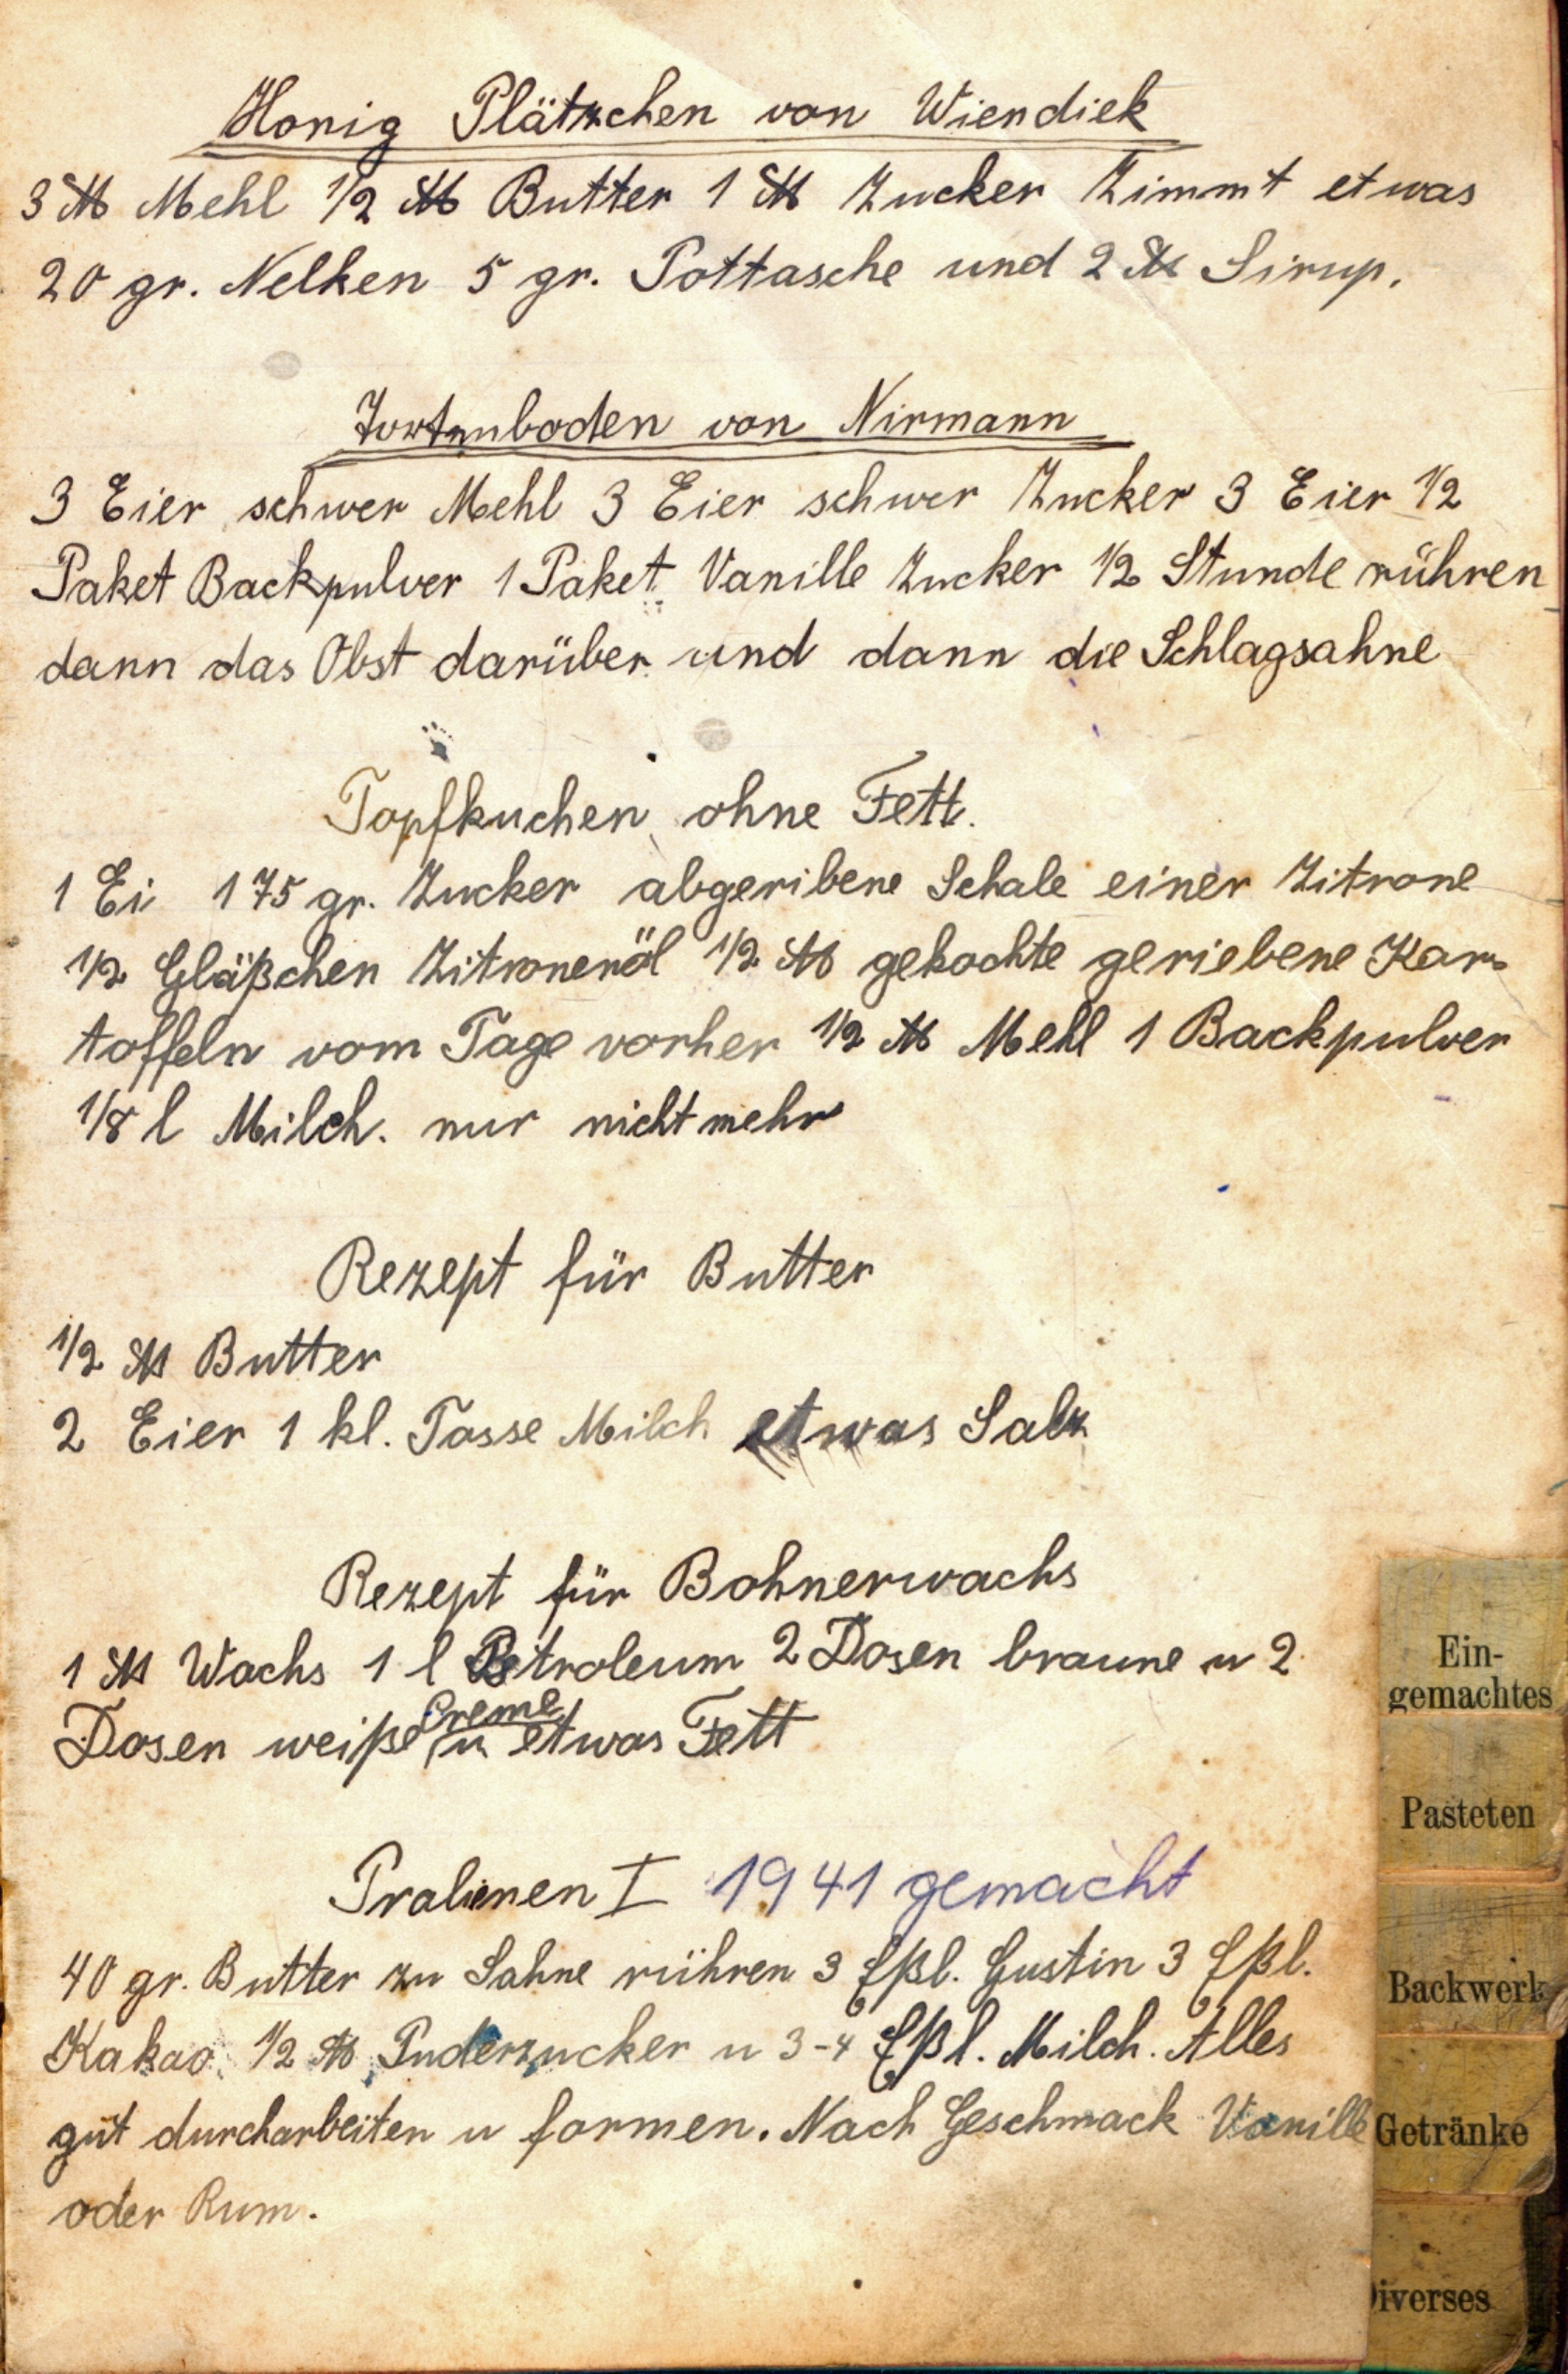 Honig Plätzchen von Wiendiek
3 ℔ Mehl 1/2 ℔ Butter 1 ℔ Zucker Zimmt etwas
20 gr. Nelken 5 gr. Pottasche und 2 ℔ Sirup.
Tortenboden von Nirmann
3 Eier schwer Mehl 3 Eier schwer Zucker 3 Eier 1/2
Paket Backpulver 1 Paket Vanille Zucker 1/2 Stunde rühren
dann das Obst darüber und dann die Schlagsahne
Topfkuchen ohne Fett.
1 Ei 175 gr. Zucker abgeribene Schale einer Zitrone
1/2 Gläßchen Zitronenöl 1/2 ℔ gekochte geriebene Kar-
toffeln vom Tage vorher 1/2 ℔ Mehl 1 Backpulver
1/8 l Milch. nur nicht mehr
Rezept für Butter
1/2 ℔ Butter
2 Eier 1 kl. Tasse Milch etwas Salz
Rezept für Bohnerwachs
1 ℔ Wachs 1 l Petroleum 2 Dosen braune u 2
Dosen weiße Creme u etwas Fett
Pralinen I 1941 gemacht
40 gr. Butter zu Sahne rühren 3 Eßl. Gustin 3 Eßl.
Kakao 1/2 ℔ Puderzucker u 3-4 Eßl. Milch. Alles
gut durcharbeiten u formen. Nach Geschmack Vanille
oder Rum.
Ein-
gemachtes
Pasteten
Backwerk
Getränke
Diverses